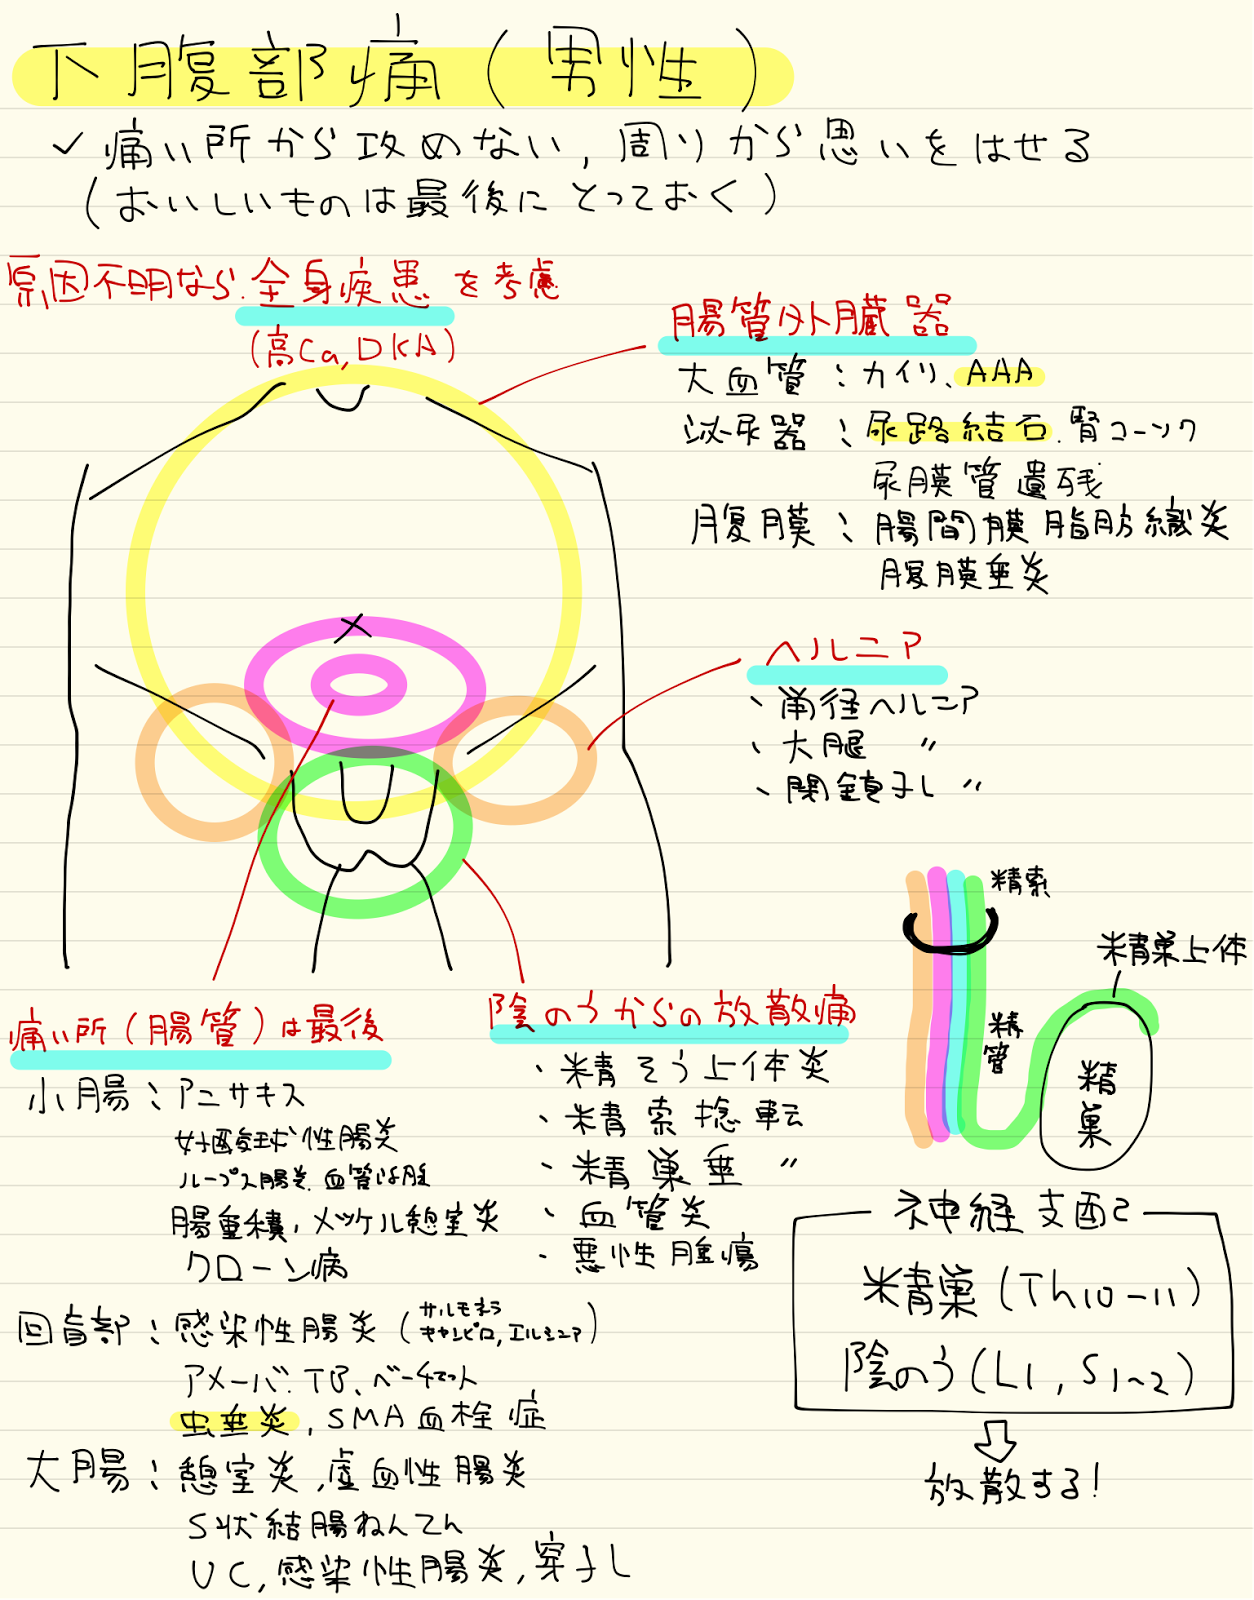 下腹部痛(男性)
✓ 痛い所から攻めない, 周りから思いをはせる
(おいしいものは最後にとっておく)
原因不明なら、全身疾患を考慮
(高Ca, DKA)
腸管外臓器
大血管:カイリ、AAA
泌尿器:尿路結石、腎コーソク
尿膜管遺残
腹膜:腸間膜脂肪織炎
腹膜垂炎
ヘルニア
・鼠径ヘルニア
・大腿 〃
・閉鎖孔 〃
精索
精巣上体
精管
精巣
痛い所(腸管)は最後
小腸:アニサキス
好酸球性腸炎
ループス腸炎、血管浮腫
腸重積, メッケル憩室炎
クローン病
回盲部:感染性腸炎(サルモネラ
キャンピロ, エルシニア)
アメーバ、TB、ベーチェット
虫垂炎, SMA血栓症
大腸:憩室炎, 虚血性腸炎
S状結腸ねんてん
UC, 感染性腸炎, 穿孔
陰のうからの放散痛
・精そう上体炎
・精索捻転
・精巣垂 〃
・血管炎
・悪性腫瘍
神経支配
精巣(Th10-11)
陰のう(L1, S1~2)
放散する!